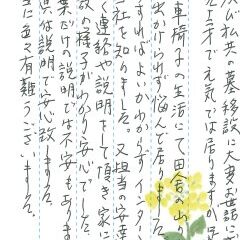 私共の墓移設に大変お世話に
才で元気では居りますが足
車椅子の生活にて田舎の
出かけられず悩んで居りました
すればよいかわからずインター
社を知りました。又担当の安
く連絡や説明をして頂き家に
の様子がわかり安心でした。
葉だけの説明では不安もありま
説明で安心致しました。
当に 有難うございました。